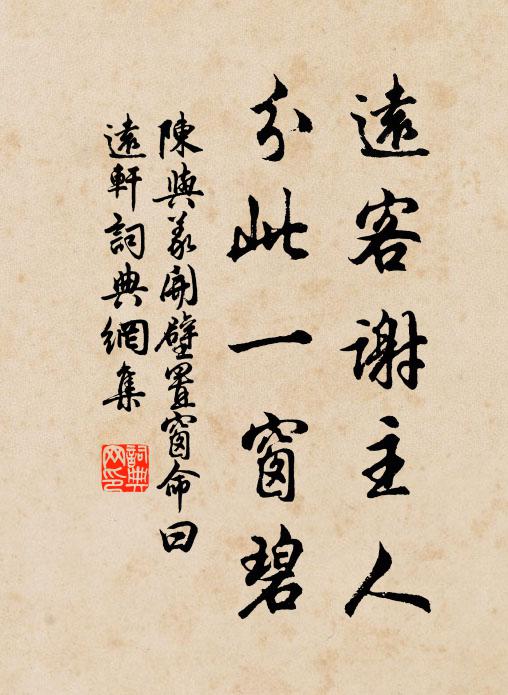 遠客謝主人
分此一窗碧
陳與義開壁置窗命曰
遠軒詞典網集
詞典
網印